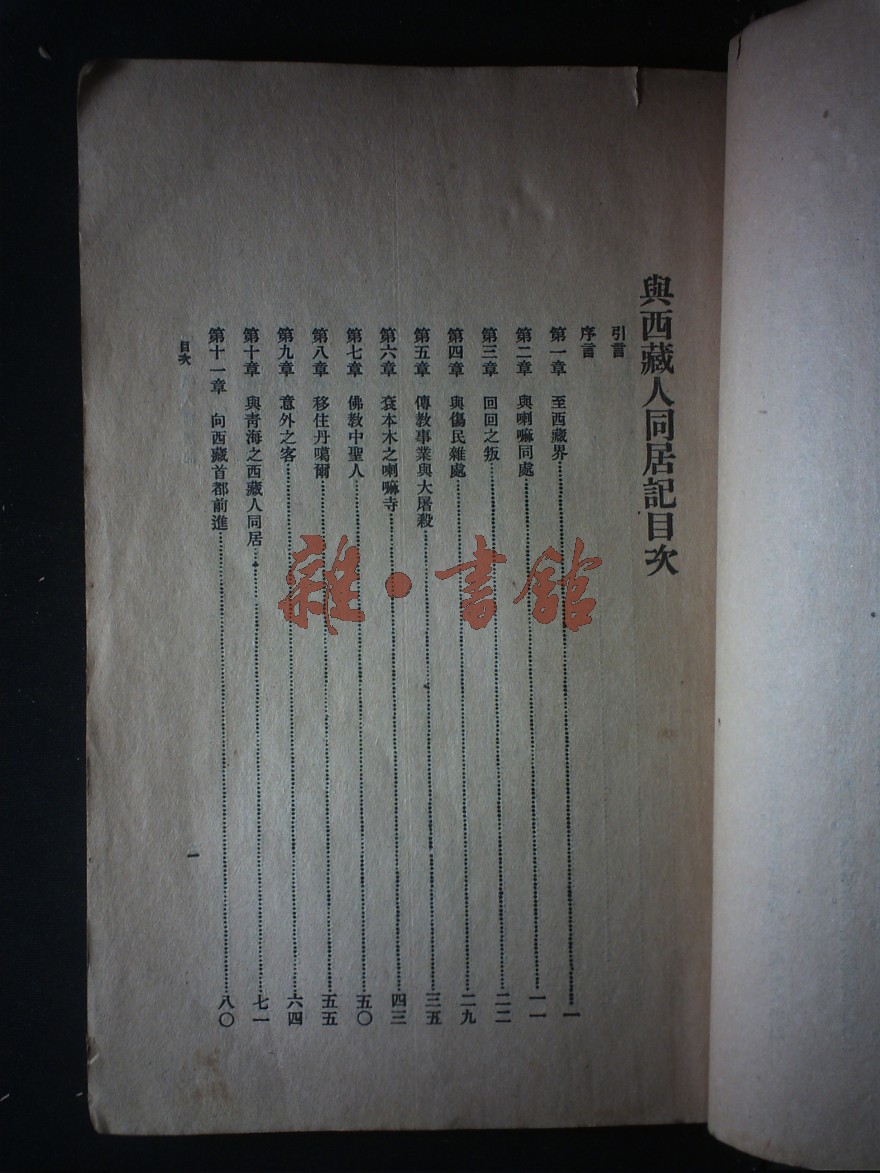 與西藏人同居記目次
引言
序言
第一章　至西藏界……一
第二章　與喇嘛同處……一一
第三章　回回之叛……二二
第四章　與傷民雜處……二九
第五章　傳教事業與大屠殺……三五
第六章　袞本木之喇嘛寺……四三
第七章　佛教中聖人……五〇
第八章　移住丹噶爾……五五
第九章　意外之客……六四
第十章　與青海之西藏人同居……七一
第十一章　向西藏首都前進……八〇
目次
一
雜·書館